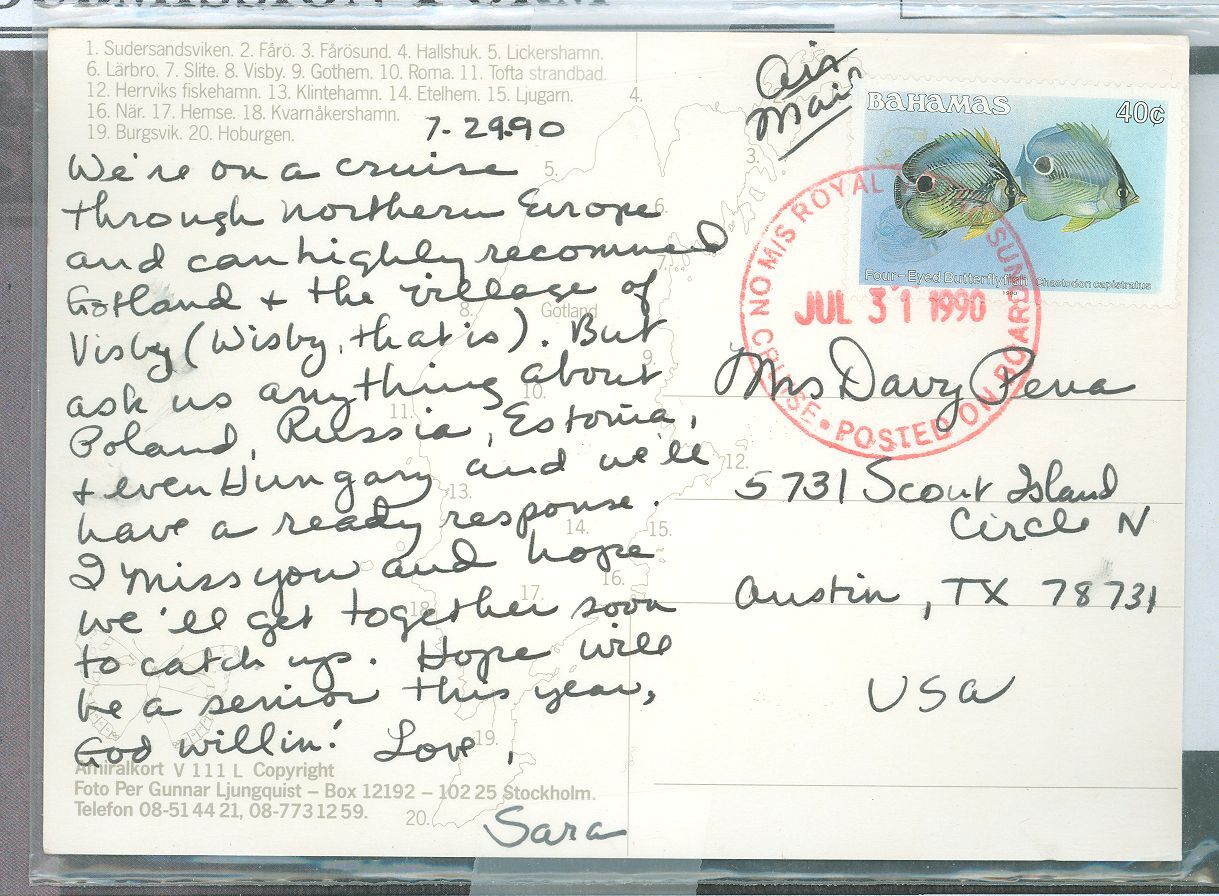 1. Sudersandsviken. 2. Fårö. 3. Fårösund. 4. Hallshuk. 5. Lickershamn.
6. Lärbro. 7. Slite. 8. Visby. 9. Gothem. 10. Roma. 11. Tofta strandbad.
12. Herrviks fiskehamn. 13. Klintehamn. 14. Etelhem. 15. Ljugarn.
16. När. 17. Hemse. 18. Kvarnåkershamn.
19. Burgsvik. 20. Hoburgen.
7-29-90
We're on a cruise
through northern Europe
and can highly recommend
Gotland + the village of
Visby (Wisby, that is). But
ask us anything about
Poland, Russia, Estonia,
+ even Hungary and we'll
have a ready response.
I miss you and hope
we'll get together soon
to catch up. Hope will
be a senior this year,
God willin! Love,
Sara
Amiralkort V 111 L Copyright
Foto Per Gunnar Ljungquist – Box 12192 – 102 25 Stockholm.
Telefon 08-51 44 21, 08-773 12 59.
4.
3.
5.
6.
8.
Gotland
9.
10.
11.
12.
13.
14.
15.
16.
17.
18
19.
20.
Air
Mail
BAHAMAS 40¢
Four-Eyed Butterflyfish Chaetodon capistratus
1990
CRUISE NO M/S ROYAL
POSTED ON BOARD
JUL 31 1990
Mrs Davy Pena
5731 Scout Island
Circle N
Austin, TX 78731
USA